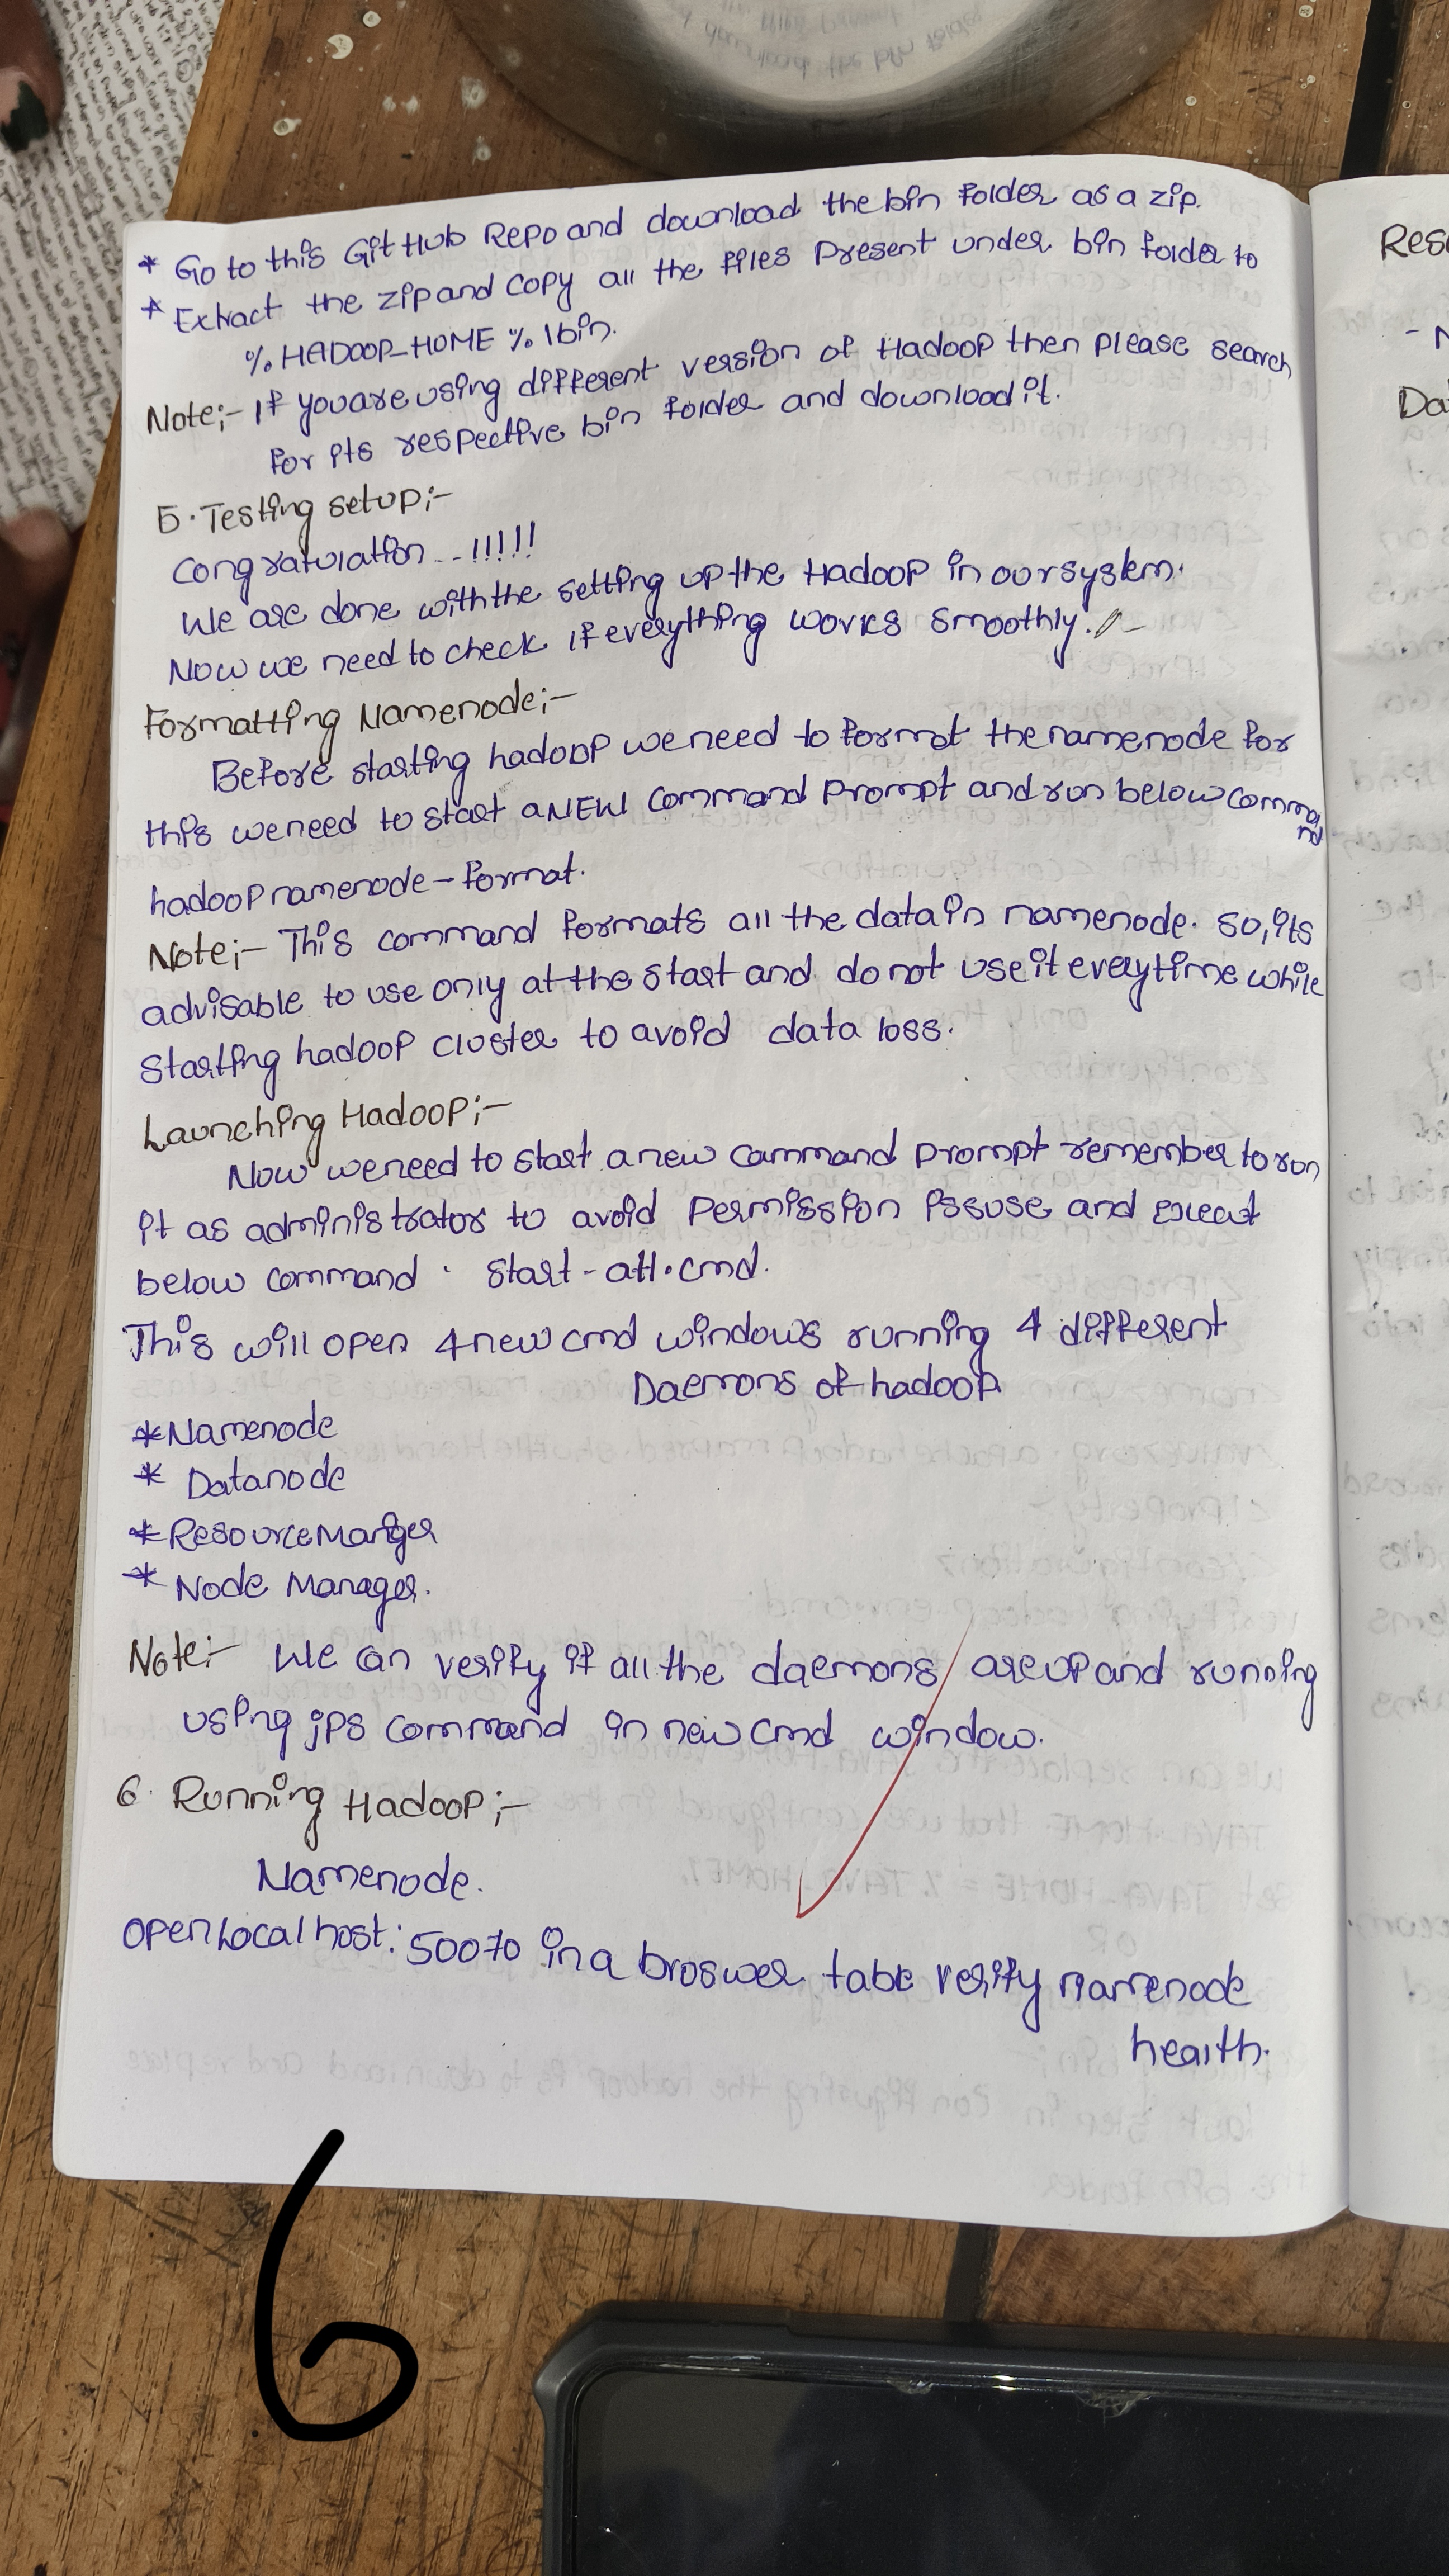 * Go to this GitHub Repo and download the bin folder as a zip.
* Extract the zip and copy all the files present under bin folder to
%HADOOP_HOME%\bin.
Note;- If you are using different version of Hadoop then please search
for its respective bin folder and download it.
5. Testing setup;-
Congratulation...!!!!!
We are done with the setting up the Hadoop in our system.
Now we need to check if everything works smoothly.
Formatting Namenode;-
Before starting hadoop we need to format the namenode for
this we need to start a NEW command prompt and run below command
hadoop namenode - format.
Note;- This command formats all the data in namenode. So, its
advisable to use only at the start and do not use it everytime while
starting hadoop cluster to avoid data loss.
Launching Hadoop;-
Now we need to start a new command prompt remember to run
it as administrator to avoid permission issuse and execut
below command. start-all.cmd.
This will open 4 new cmd windows running 4 different
Daemons of hadoop
*Namenode
* Datanode
*Resource Manger
* Node Manager.
Note:- We can verify if all the daemons are up and running
using jps command in new cmd window.
6. Running Hadoop;-
Namenode.
Open Localhost:50070 in a broswer tabe verify namenode
health.
6
Res
- N
Da